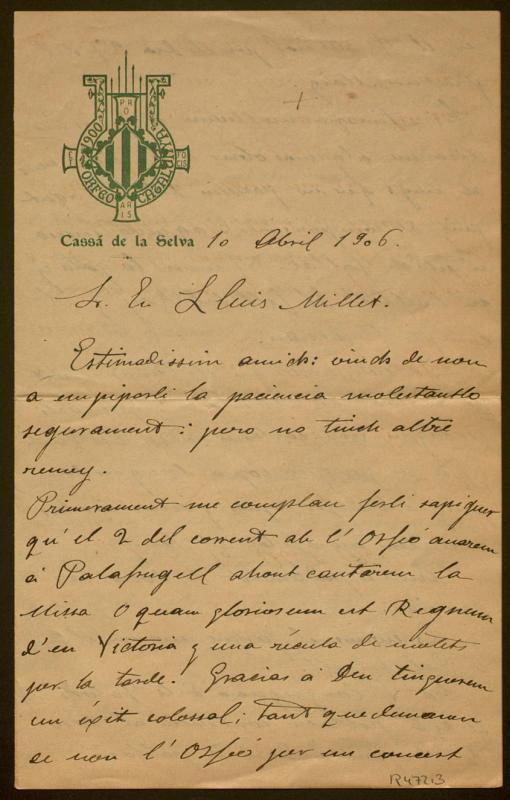 1900
PRO
ORFEÓ CATALUNYA
ARIS
Cassá de la Selva 10 Abril 1906.
Sr. En Lluis Millet.
Estimadissim amich: vinch de nou
a empiparli la paciencia molestantlo
segurament: pero no tinch altre
remey.
Primerament me complau ferli sapiguer
qu'el 2 del corrent ab l'Orfeó anarem
á Palafrugell ahont cantarem la
Missa O quam gloriosum est Regnum
d'en Victoria y una récula de motets
per la tarde. Gracias á Deu tinguerem
un éxit colossal; tant que demanan
de nou l'Orfeó per un concert
R47213